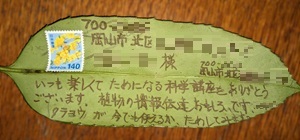 700-
岡山市北区
様
140
700-
岡山市北区
いつも楽しくてためになる科学講座をありがとう
ございます。植物の情報伝達おもしろいです。
タラヨウが今でも使えるか、ためしてみます